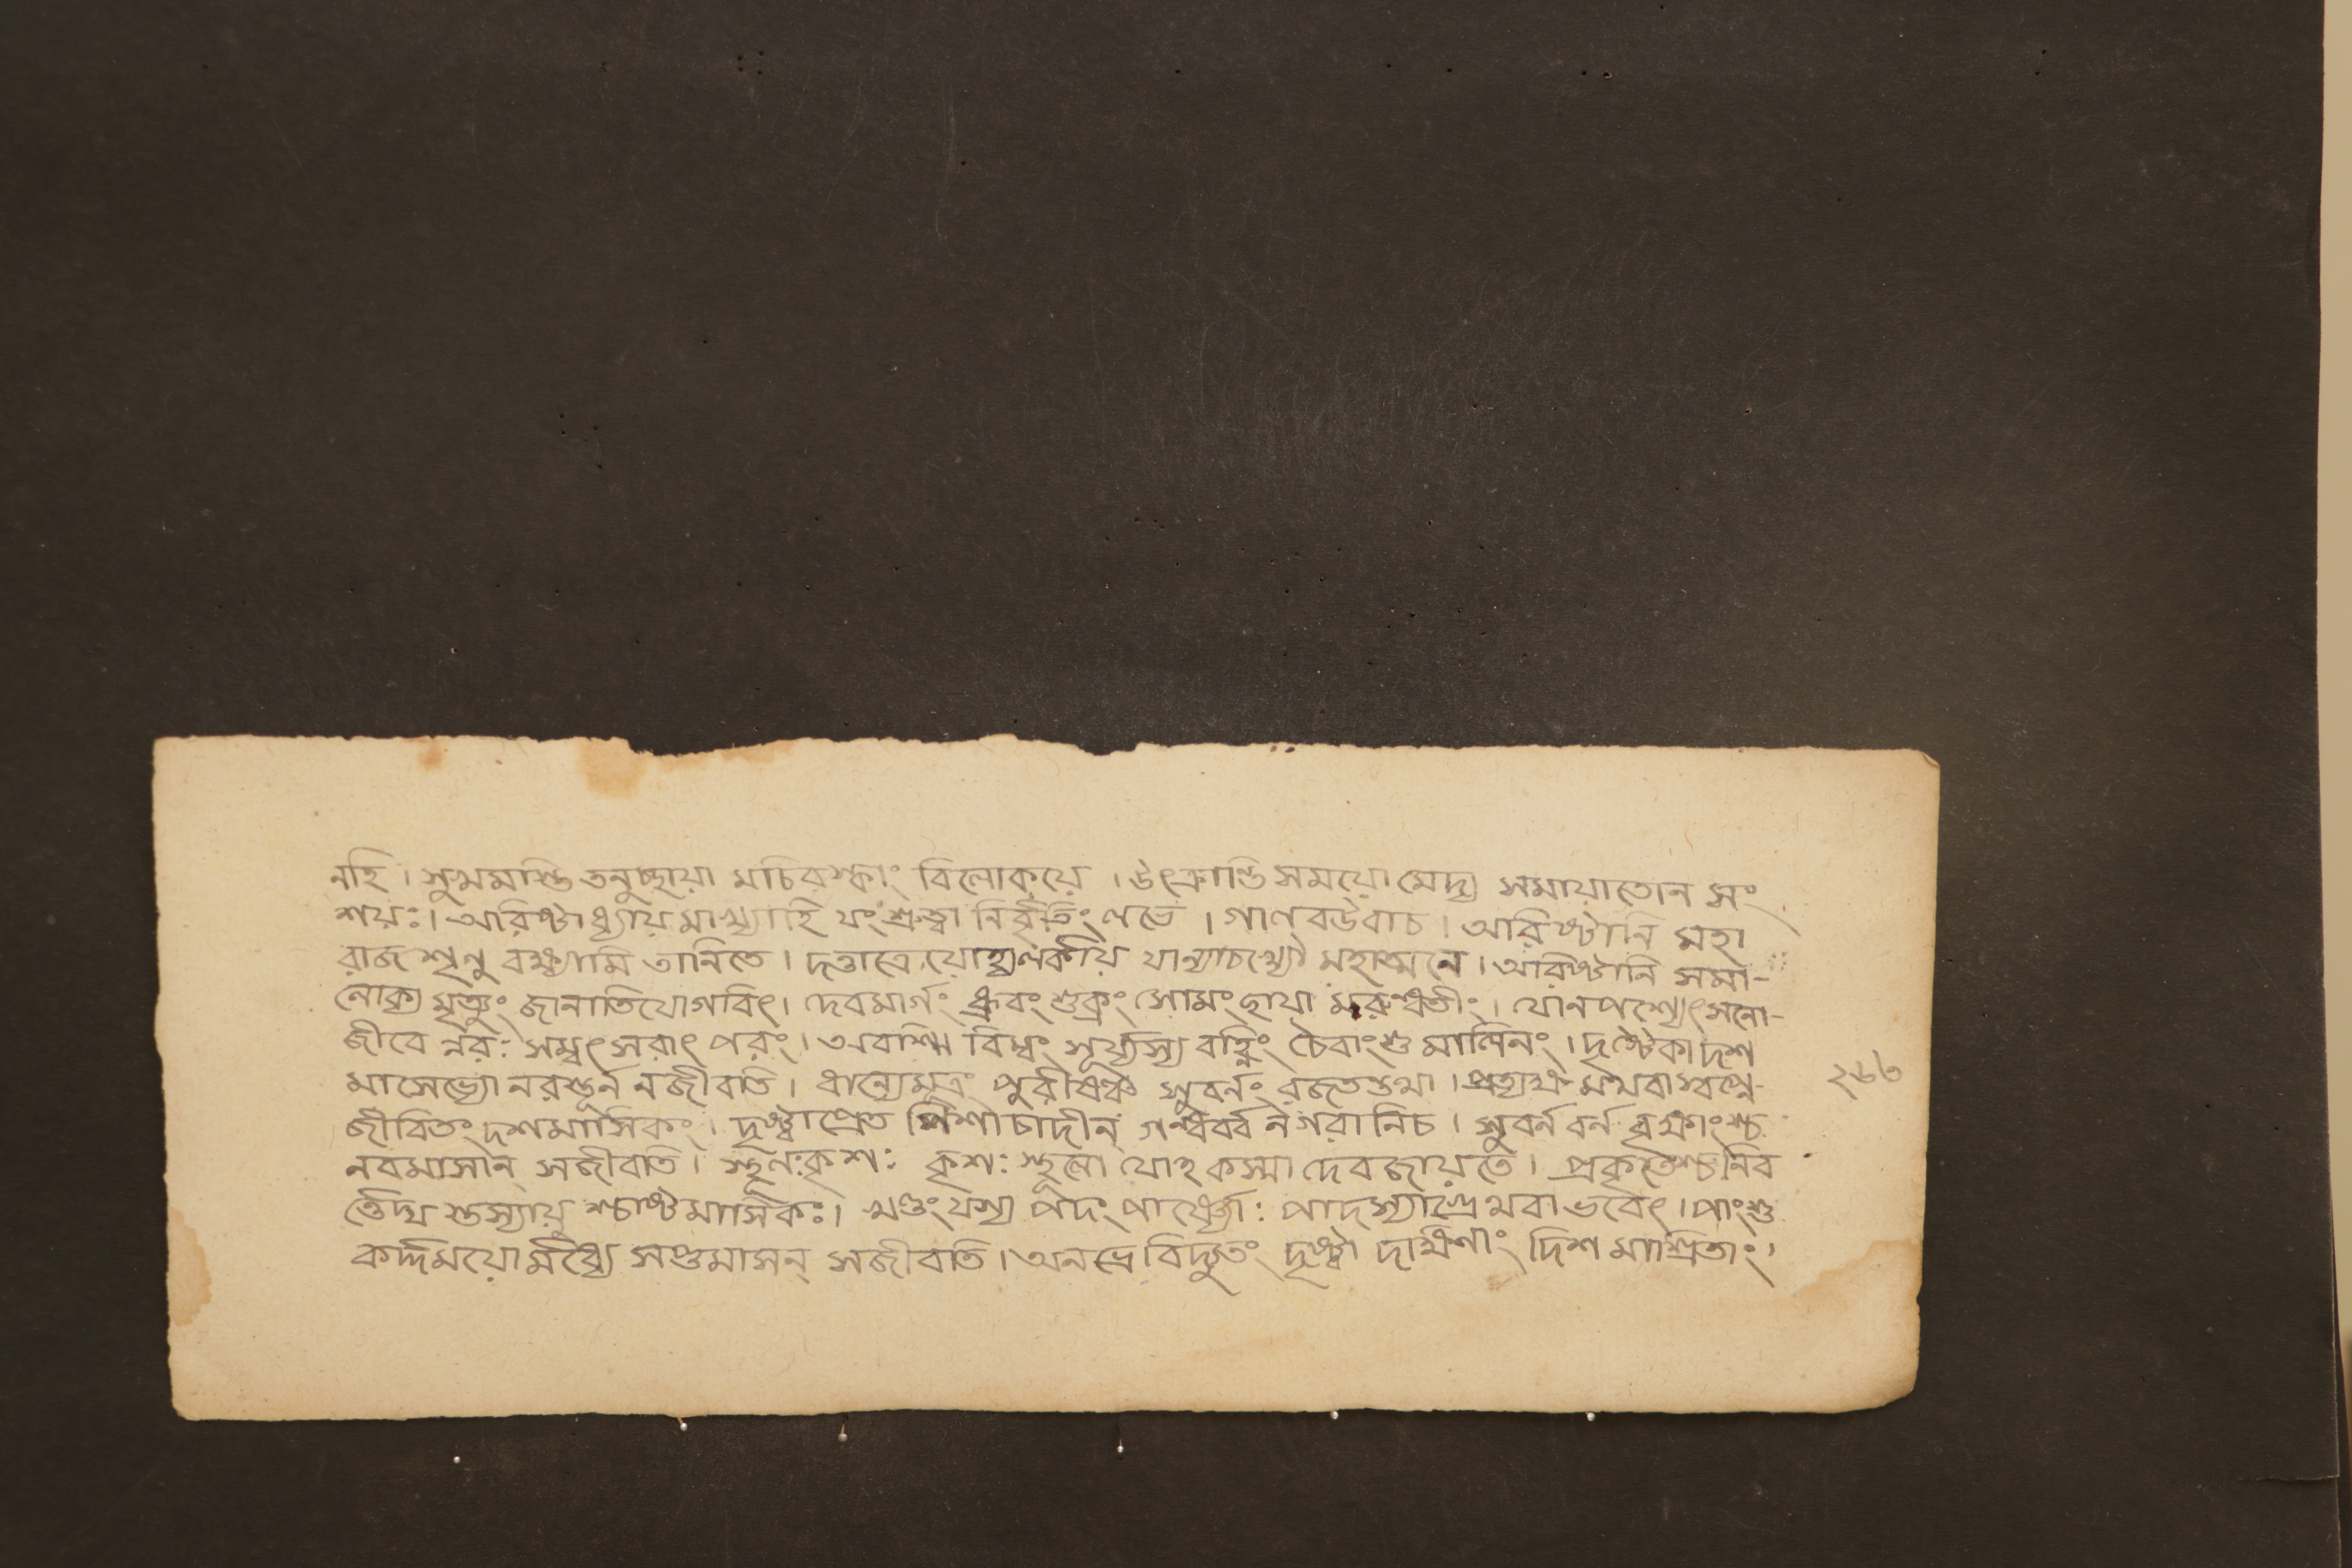 নহি । সুক্ষ্মমাস্তি তনুচ্ছায়া মচিরস্কাং বিলোকয়ে । উৎক্রান্তি সময়ো মেদ্য সমায়াতোন সং
শয়ঃ । অরিষ্টাধ্যায় মাখ্যাহি যং শ্রুত্বা নির্বৃতিং লভে । গালবউবাচ । অরিষ্টানি মহা
রাজ শৃনু বক্ষ্যামি তানিতে । দত্তাত্রেয়োহ্যলর্কায় যান্যাচখ্যৌ মহাত্মনে । অরিষ্টানি সমা-
লোক্য মৃত্যুং জানাতিযোগবিৎ । দেবমার্গং ধ্রুবং শুক্রং সোমং ছায়া মরুন্ধতীং । যোনপশ্যেৎসনো-
জীবে ন্নরঃ সম্বৎসরাৎ পরং । অরশ্মি বিম্বং সূর্য্যস্য বহ্নিং চৈবাংশুমালিনং । দৃষ্টৈকাদশ
মাসেভ্যো নরস্তূর্ন নজীবতি । ধান্যেমূত্রং পুরীষঞ্চ সুবর্নং রজতন্তথা । প্রত্যক্ষ মথবা স্বপ্নে-
জীবিতং দশমাসিকং । দৃষ্ট্বাপ্রেত পিশাচাদীন্ গন্ধর্ব্ব নগরানিচ । সুবর্নবর্ন বৃক্ষাংশ্চ
নবমাসান্ সজীবতি । স্থূলঃকৃশঃ কৃশঃ স্থূলো যোহকস্মা দেবজায়তে । প্রকৃতেশ্চনিব
র্ত্তেদ্য স্তস্যায়ু শ্চাষ্টমাসিকঃ । খণ্ডং যস্য পদং পার্ষ্ণ্যোঃ পাদস্যাগ্রেথবা ভবেৎ । পাংশু
কর্দ্দময়োর্মধ্যে সপ্তমাসন্ সজীবতি । অনভ্রে বিদ্যুতং দৃষ্ট্বা দক্ষিণাং দিশ মাশ্রিতাং ।
২৮৩